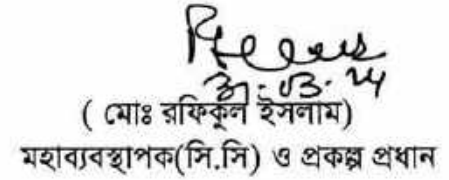 ৩১.০৩.২৪
( মোঃ রফিকুল ইসলাম)
মহাব্যবস্থাপক(সি.সি) ও প্রকল্প প্রধান